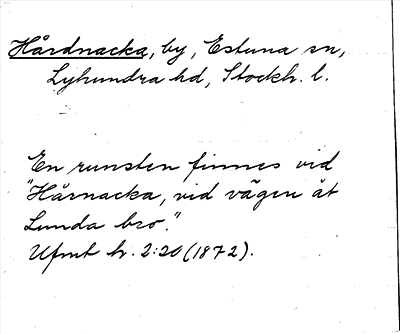 Hårdnacka, by, Estuna sn,
Lyhundra hd, Stockh. l.
En runsten finnes vid
"Hårnacka, vid vägen åt
Lunda bro."
Ufmt h. 2:20 (1872).